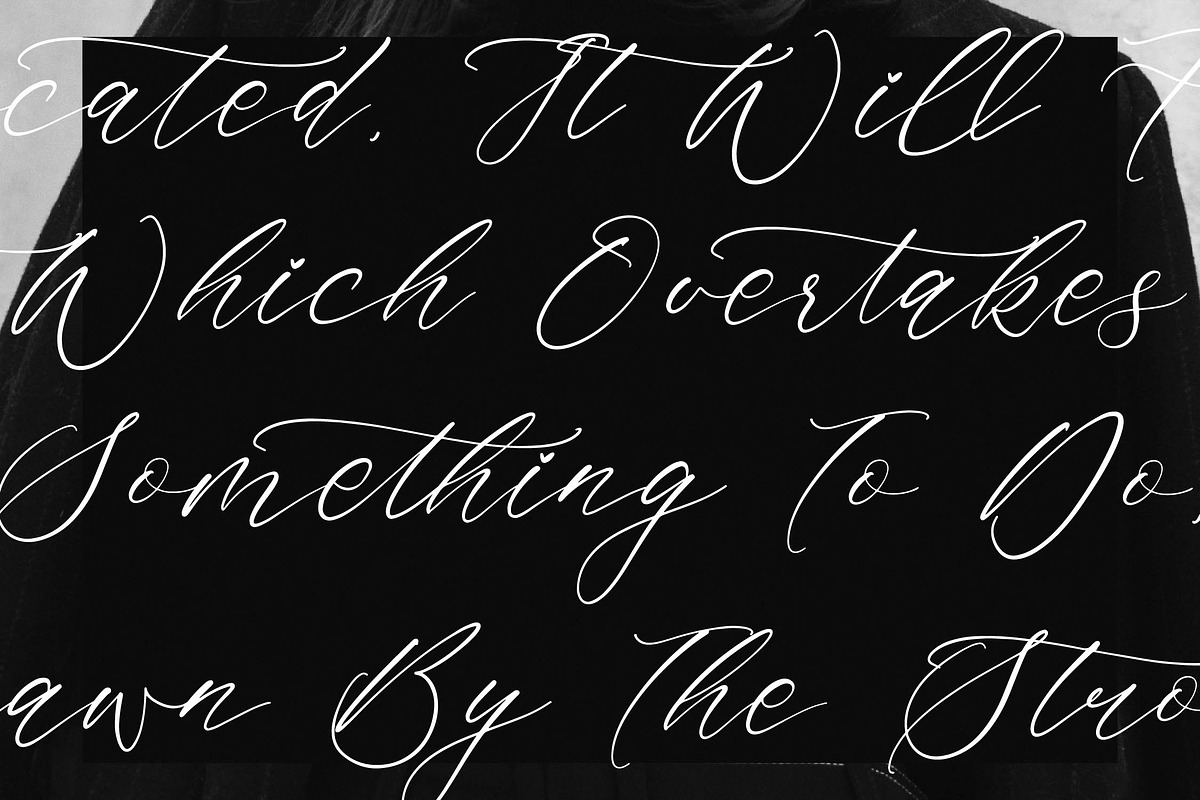 cated, It Will T
Which Overtakes
Something To Do,
awn By The Stro